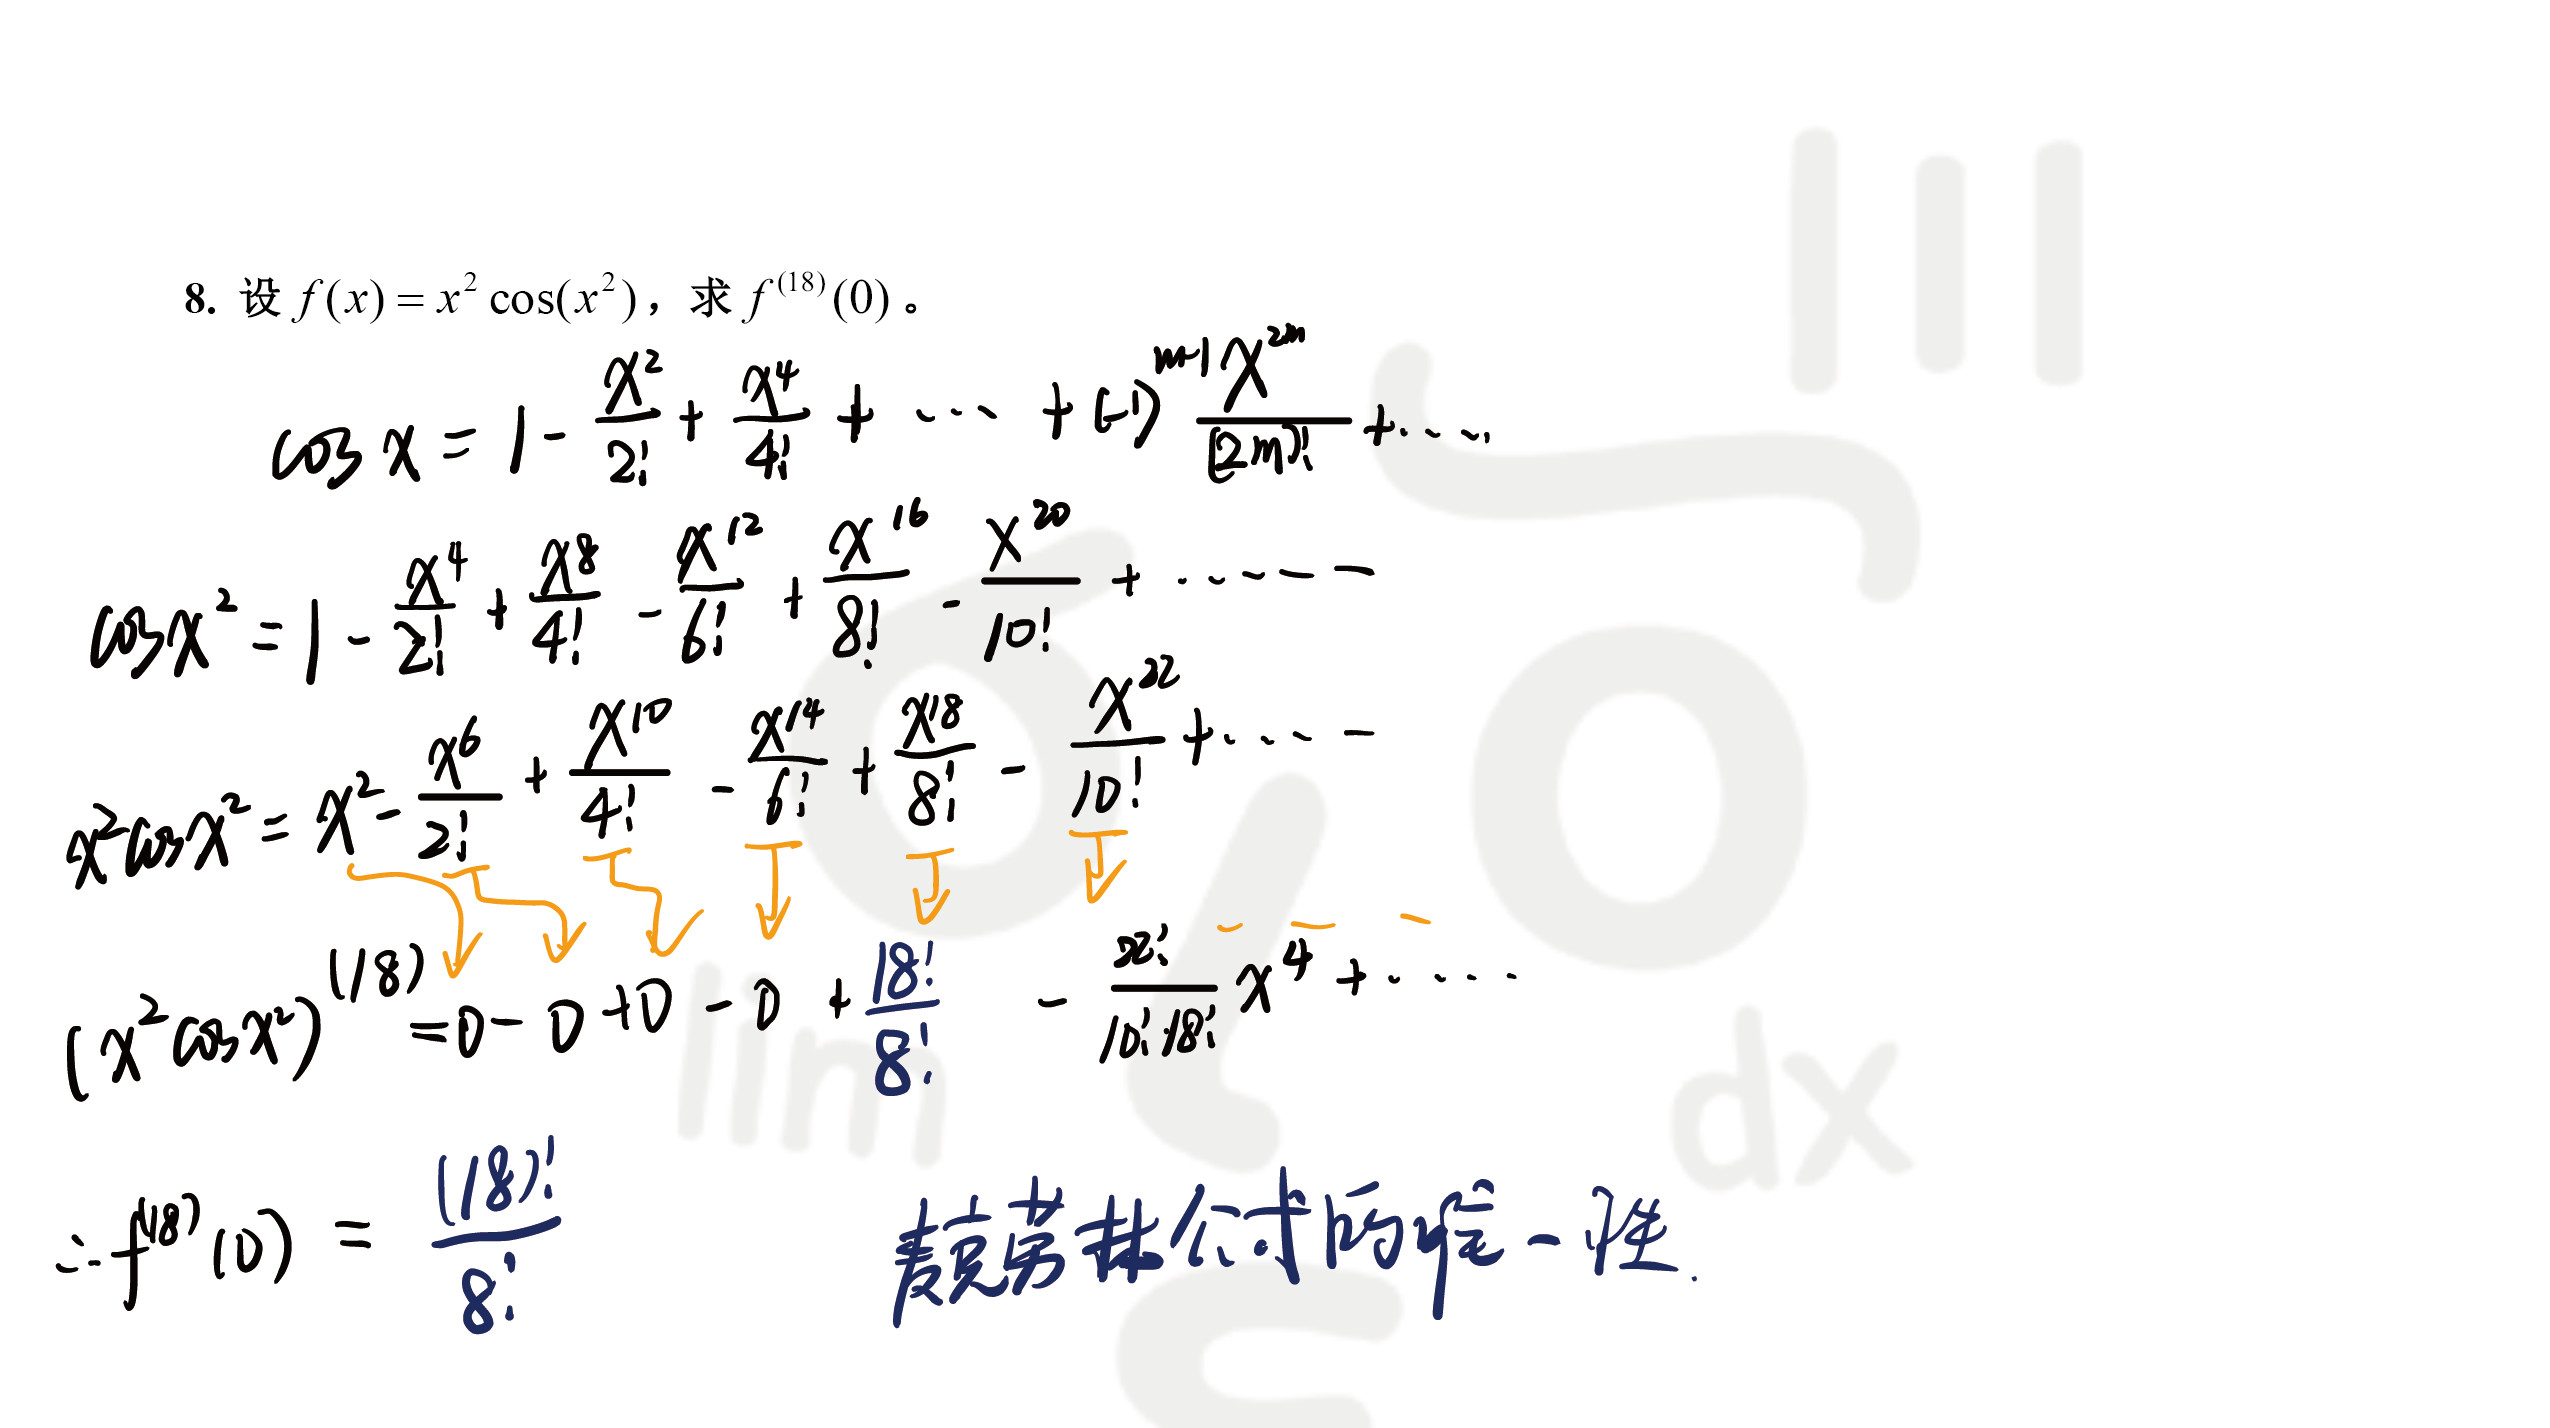 8. 设 f(x) = x² cos(x²)，求 f⁽¹⁸⁾(0)。
cos x = 1 - x²/2! + x⁴/4! + ⋯ + (-1)ᵐ⁻¹ x²ᵐ/(2m)! + ⋯
cos x² = 1 - x⁴/2! + x⁸/4! - x¹²/6! + x¹⁶/8! - x²⁰/10! + ⋯
x² cos x² = x² - x⁶/2! + x¹⁰/4! - x¹⁴/6! + x¹⁸/8! - x²²/10! + ⋯
(x² cos x²)⁽¹⁸⁾ = 0 - 0 + 0 - 0 + 18!/8! - 22!/(10! 18!) x⁴ + ⋯
∴ f⁽¹⁸⁾(0) = (18)!/8!
麦克劳林公式的唯一性.
lim
dx